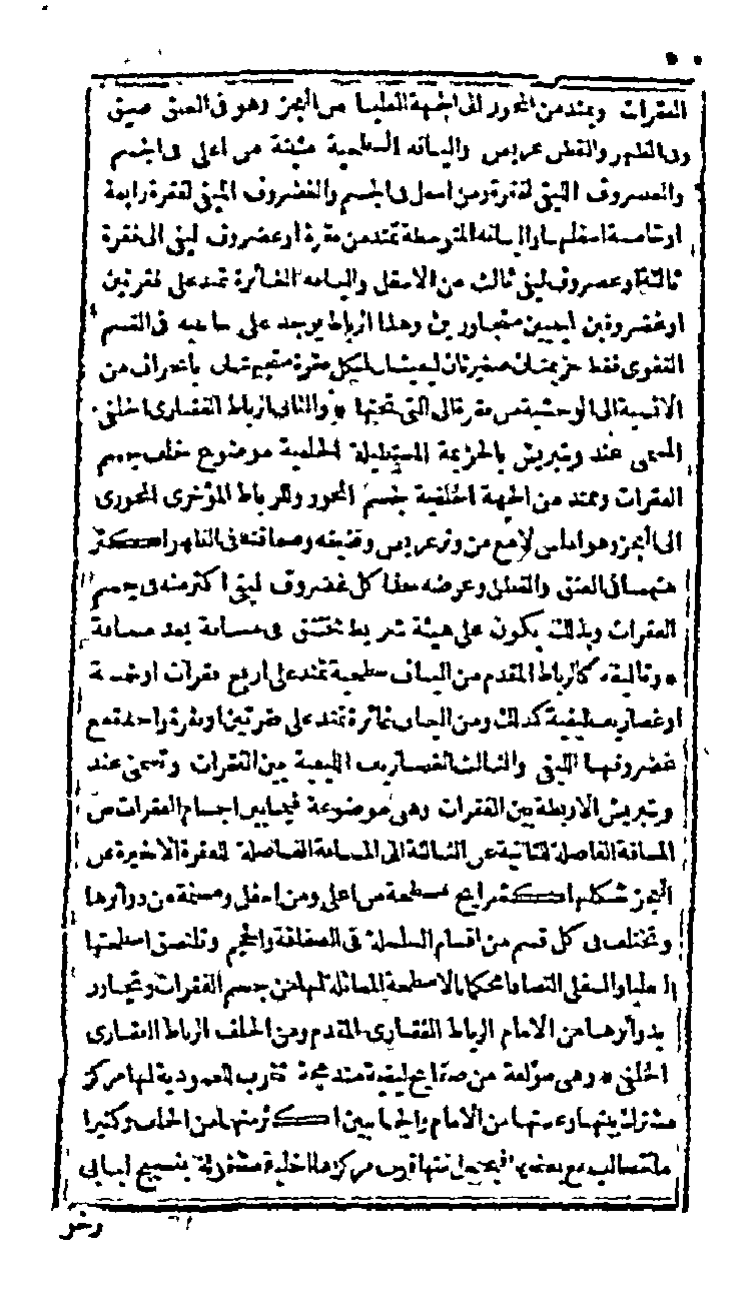 الفقرات ويمتد من المحور الى الجهة العليا من العجز وهو فى العنق ضيق
وفى الظهر والقطن عريض واليافه السطحية مثبتة من اعلى فى الجسم
والغضروف الليفى لفقرة ومن اسفل فى الجسم والغضروف الليفى لفقرة رابعة
او خامسة اسفلها واليافه المتوسطة تمتد من فقرة او غضروف ليفى الى فقرة
ثالثة او غضروف ليفى ثالث من الاسفل واليافه الغائرة تمتد على فقرتين
او غضروفين ليفيين متجاورين وهذا الرباط يوجد على جانبيه فى القسم
الفقرى فقط حزيمتان صغيرتان ليفيتان لكل فقرة متجهتان بانحراف من
الانسية الى الوحشية من فقرة الى التى تحتها * والثانى الرباط الفقارى الخلفى
المسمى عند وتبريش بالحزيمة المستطيلة الخلفية موضوع خلف جسم
الفقرات ويمتد من الجهة الخلفية لجسم المحور وللرباط المؤخرى المحورى
الى العجز وهو املس لامع من وتر عريض وضيقه وصفاقته فى الظهر اكثر
منهما فى العنق والقطن وعرضه حذا كل غضروف ليفى اكثر منه فى جسم
الفقرات وبذلك يكون على هيئة شريط مختنق فى مسافة بعد مسافة
* وتاليفه كالرباط المقدم من الياف سطحية تمتد على اربع فقرات او خمسة
او غضاريف ليفية كذلك ومن الياف غائرة تمتد على فقرتين او فقرة واحدة مع
غضروفها الليفى والثالث الغضاريف الليفية بين الفقرات وتسمى عند
وتبريش الاربطة بين الفقرات وهى موضوعة فيما بين اجسام الفقرات من
المسافة الفاصلة للثانية عن الثالثة الى المسافة الفاصلة للفقرة الاخيرة عن
العجز شكلها كقرايح مسطحة من اعلى ومن اسفل ومسنمة من دوائرها
وتختلف فى كل قسم من اقسام السلسلة فى الصفاقة والحجم وتلتصق اسطحتها
العليا والسفلى التصاقا محكما بالاسطحة المماثلة لها من جسم الفقرات وتجاور
بدوائرها من الامام الرباط الفقارى المقدم ومن الخلف الرباط الفقارى
الخلفى * وهى مؤلفة من صفايح ليفية مندمجة تقرب للعمودية لها مركز
مشترك بينها وعدتها من الامام والجانبين اكثر منها من الخلف وكثيرا
ما تتصالب مع بعضها فيحصل منها قرب مركزها اخلية مشغولة بنسيج لبابى
رخو